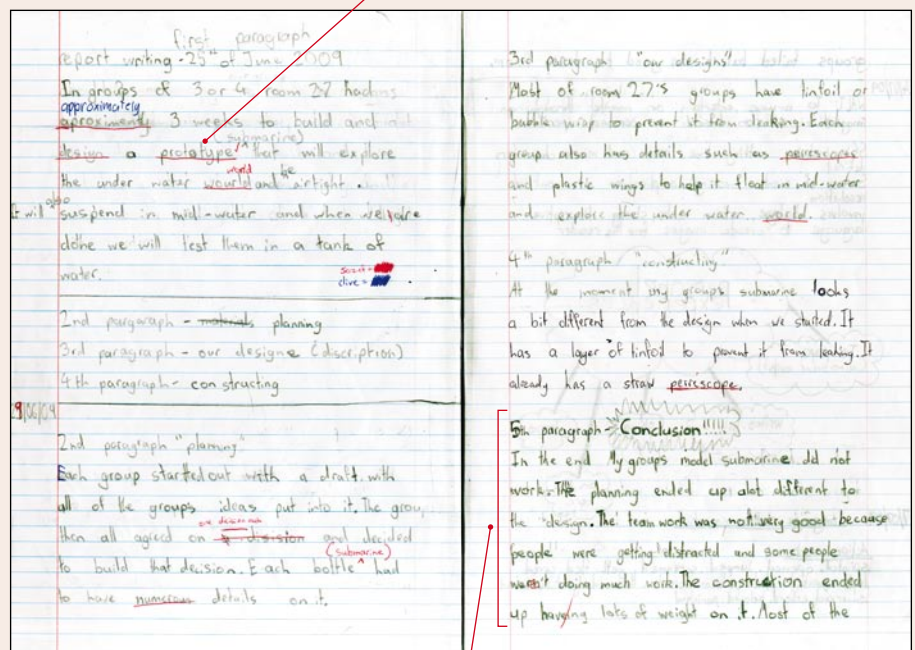 first paragraph
report writing - 25th of June 2009
In groups of 3 or 4 room 27 had
approximately
aproximently 3 weeks to build and
(submarine)
design a prototype ^ that will explore
world the
the under water wourld and airtight.
It will also suspend in mid-water and when we are
done we will test them in a tank of
water.
scarlet =
clive =
2nd pargaraph - materials planning
3rd paragraph - our designe (discription)
4th paragraph - constructing
29/06/09
2nd paragraph "planning"
Each group started out with a draft. with
all of the groups ideas put into it. The group
one decision
then all agreed on a dission and decided
(submarine)
to build that decision. Each bottle ^ had
to have numerous details on it.
3rd paragraph "our designs"
Most of room 27's groups have tinfoil or
bubble wrap to prevent it from leaking. Each
group also has details such as peirescopes
and plastic wings to help it float in mid-water
and explore the under water world.
4th paragraph "constructing"
At the moment my groups submarine looks
a bit different from the design when we started. It
has a layer of tinfoil to prevent it from leaking. It
already has a straw peirescope.
5th paragraph - Conclusion!!!!!
In the end My groups model submarine did not
work. The planning ended up alot different to
the design. The team work was not very good because
people were getting distracted and some people
wasn't doing much work. The construction ended
up having lots of weight on it. Most of the